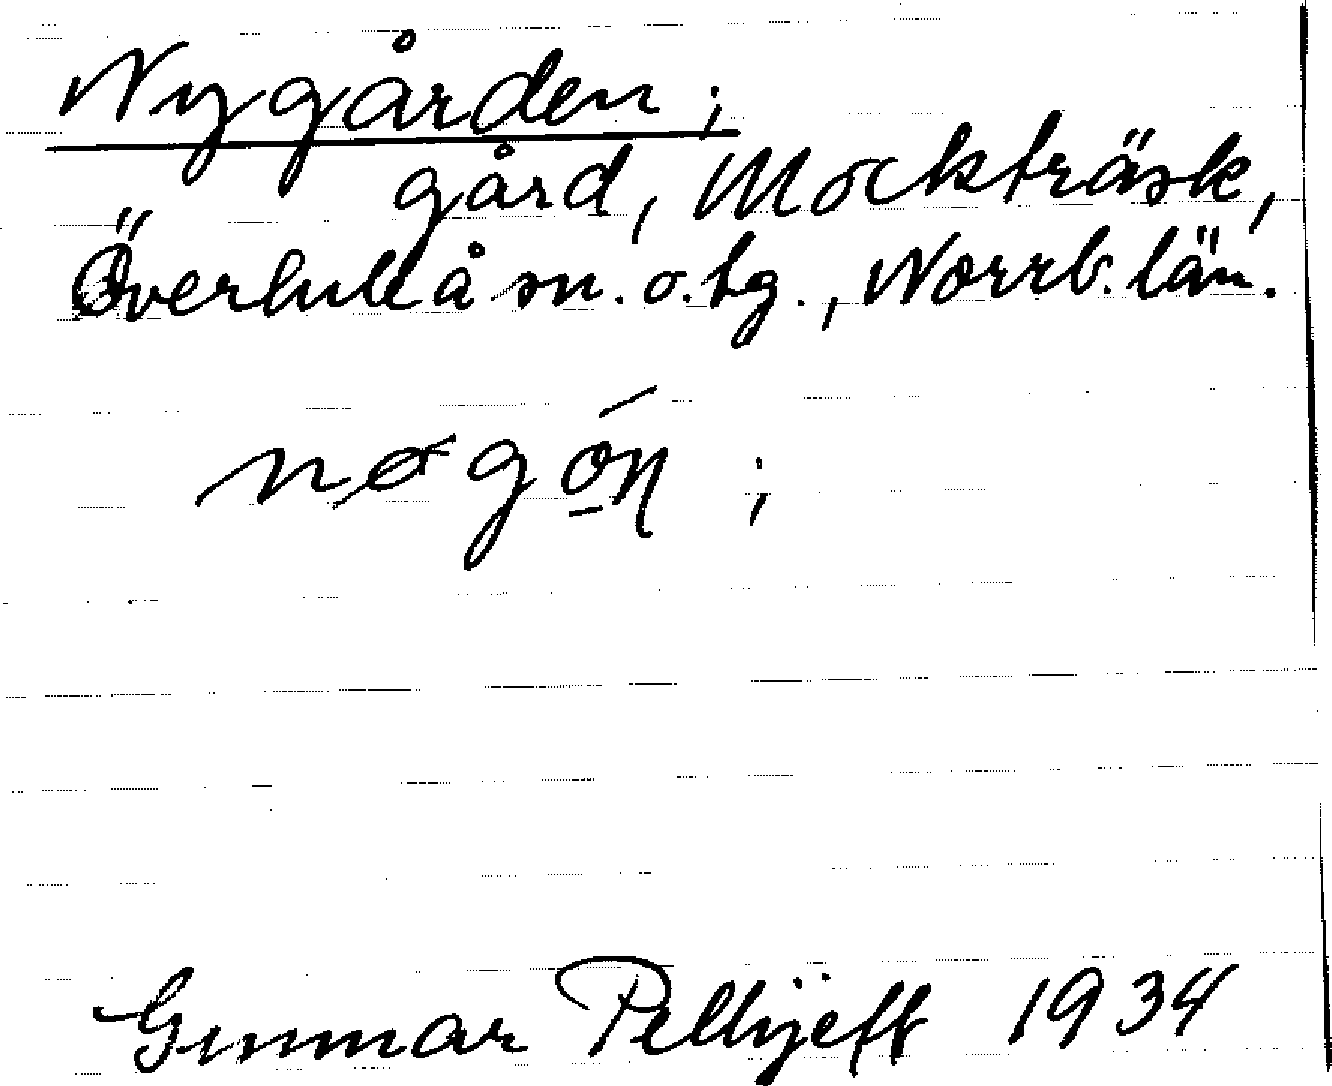 Nygården;
gård, Mockträsk,
Överluleå sn. o. tg., Norrb. län.
Gunnar Pellijeff 1934